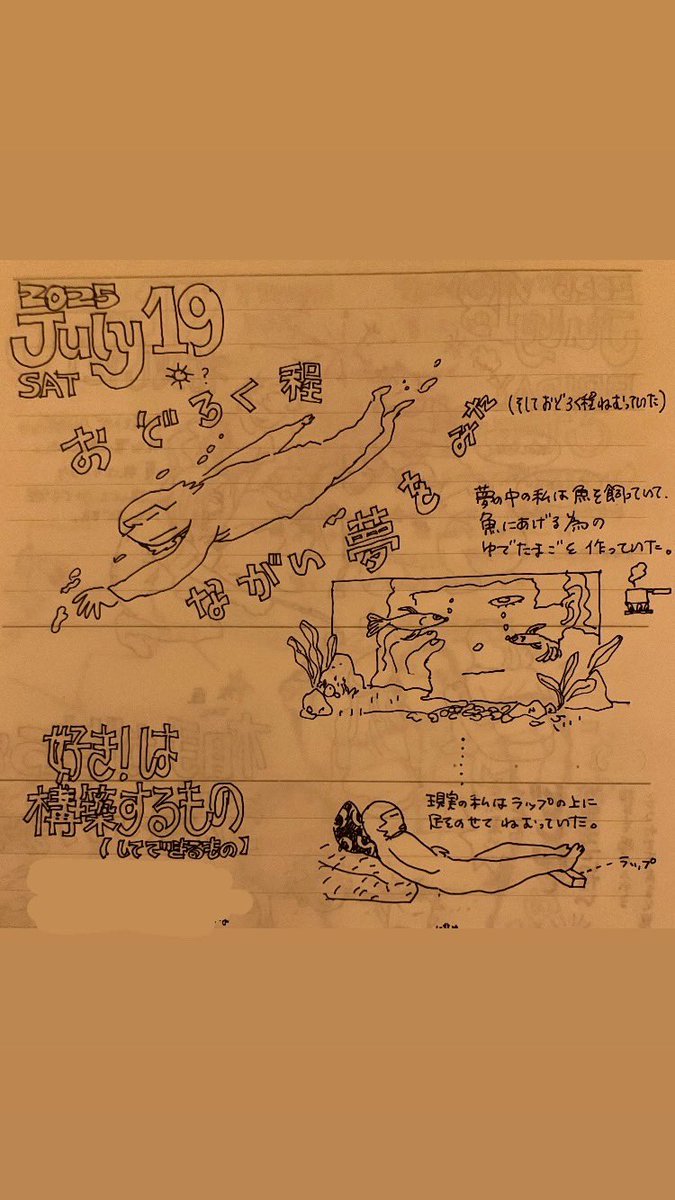 2025
July 19
SAT
?
おどろく程
ながい夢をみた
(そしておどろく程ねむっていた)
夢の中の私は魚を飼っていて、
魚にあげる為の
ゆでたまごを作っていた。
好き!は
構築するもの
(してできるもの)
現実の私はラップの上に
足をのせてねむっていた。
ラップ